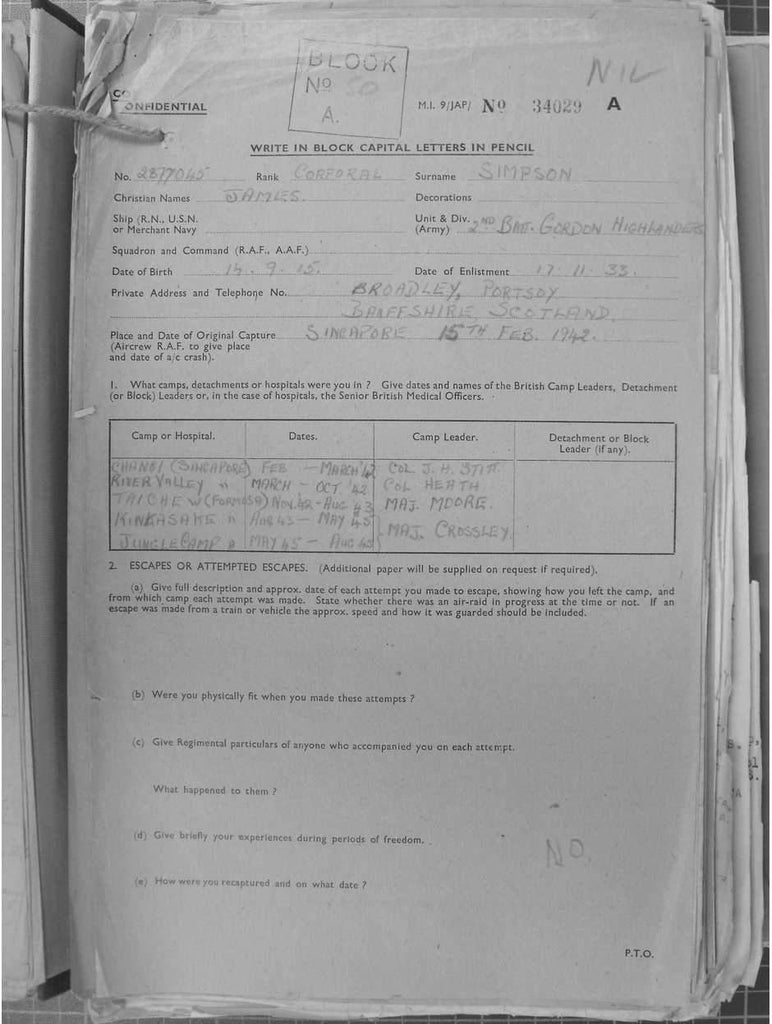 BLOCK
No 50
A.
NIL
CONFIDENTIAL
M.I. 9/JAP/ No 34029 A
WRITE IN BLOCK CAPITAL LETTERS IN PENCIL
No. 2877045 Rank CORPORAL Surname SIMPSON
Christian Names JAMES. Decorations
Ship (R.N., U.S.N. or Merchant Navy
Unit & Div. (Army) 2ND BATT. GORDON HIGHLANDERS
Squadron and Command (R.A.F., A.A.F.)
Date of Birth 9. 15. Date of Enlistment 17. 11. 33.
Private Address and Telephone No. BROADLEY, PORTSOY
BANFFSHIRE, SCOTLAND.
Place and Date of Original Capture SINGAPORE 15TH FEB. 1942.
(Aircrew R.A.F. to give place
and date of a/c crash).
1. What camps, detachments or hospitals were you in ? Give dates and names of the British Camp Leaders, Detachment
(or Block) Leaders or, in the case of hospitals, the Senior British Medical Officers.
Camp or Hospital. Dates. Camp Leader. Detachment or Block
Leader (if any).
CHANGI (SINGAPORE) FEB - MARCH '42 COL. J. H. STITT.
RIVER VALLEY " MARCH - OCT '42 COL HEATH.
(FORMOSA) NOV. 42 - AUG 43 MAJ. MOORE.
" AUG 43 - MAY 45
MAJ. CROSSLEY.
JUNGLE CAMP " MAY 45 - AUG 45
2. ESCAPES OR ATTEMPTED ESCAPES. (Additional paper will be supplied on request if required).
(a) Give full description and approx. date of each attempt you made to escape, showing how you left the camp, and
from which camp each attempt was made. State whether there was an air-raid in progress at the time or not. If an
escape was made from a train or vehicle the approx. speed and how it was guarded should be included.
(b) Were you physically fit when you made these attempts ?
(c) Give Regimental particulars of anyone who accompanied you on each attempt.
What happened to them ?
(d) Give briefly your experiences during periods of freedom.
NO.
(e) How were you recaptured and on what date ?
P.T.O.